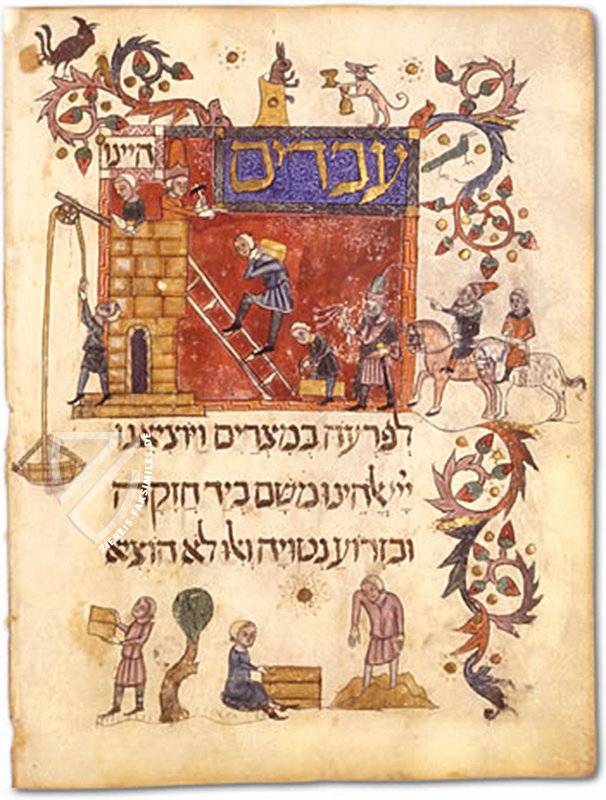 היינו עבדים
לפרעה במצרים ויוציאנו
יי אלהינו משם ביד חזקה
ובזרוע נטויה ואלו לא הוציא
ZIEREIS-FAKSIMILES.DE